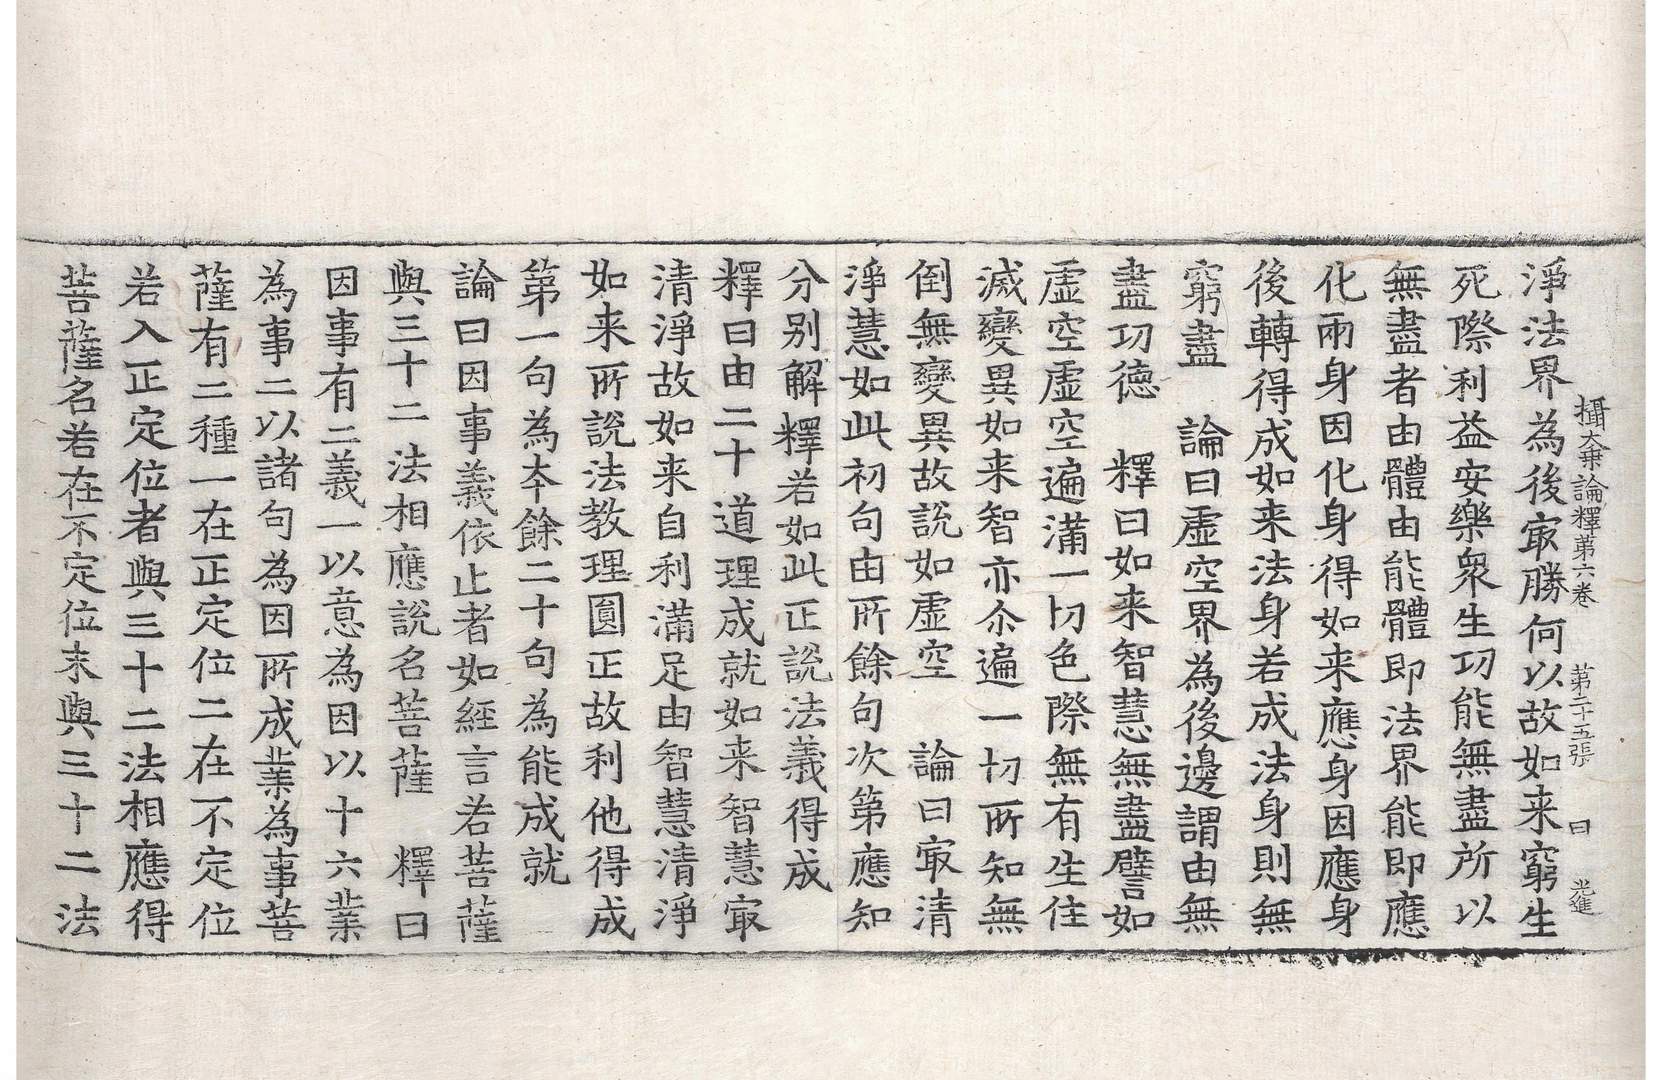 攝大乗論釋第六卷　第二十五張　曰　光進
淨法界為後㝡勝何以故如来窮生
死際利益安樂衆生功能無盡所以
無盡者由體由能體即法界能即應
化兩身因化身得如来應身因應身
後轉得成如来法身若成法身則無
窮盡　論曰虛空界為後邊謂由無
盡功德　釋曰如来智慧無盡譬如
虛空虛空遍滿一切色際無有生住
滅變異如来智亦尒遍一切所知無
倒無變異故說如虛空　論曰㝡清
淨慧如此初句由所餘句次第應知
分別解釋若如此正說法義得成
釋曰由二十道理成就如来智慧㝡
清淨故如来自利滿足由智慧清淨
如来所說法教理圓正故利他得成
第一句為夲餘二十句為能成就
論曰因事義依止者如經言若菩薩
與三十二法相應說名菩薩　釋曰
因事有二義一以意為因以十六業
為事二以諸句為因所成業為事菩
薩有二種一在正定位二在不定位
若入正定位者與三十二法相應得
菩薩名若在不定位未與三十二法